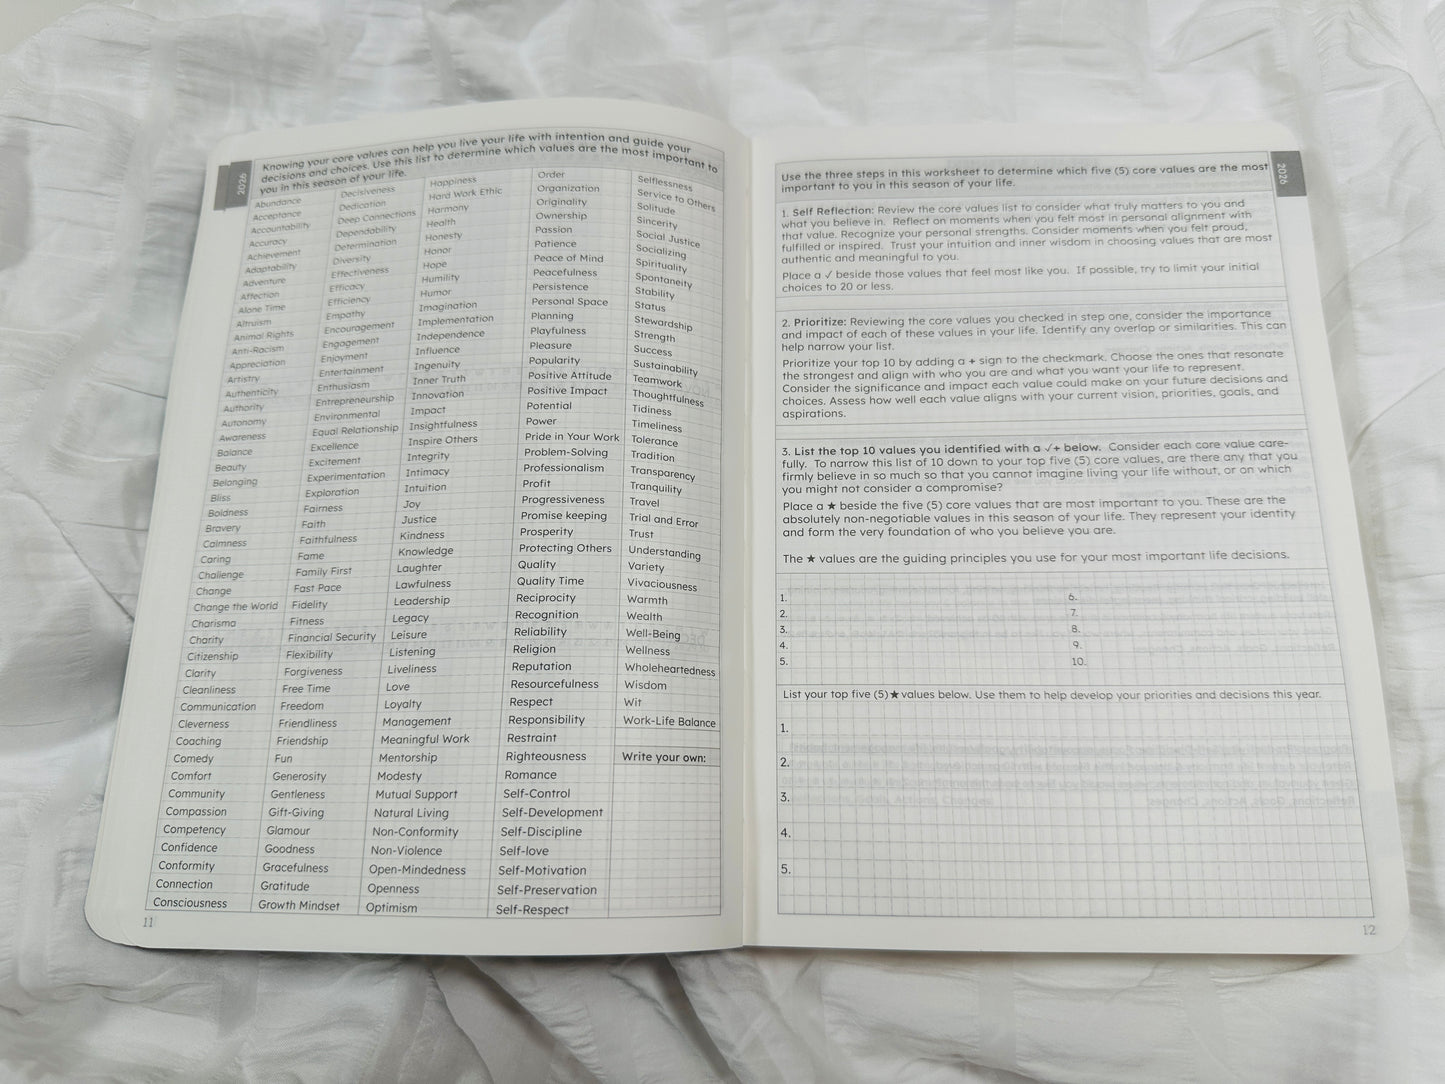 2026
Knowing your core values can help you live your life with intention and guide your
decisions and choices. Use this list to determine which values are the most important to
you in this season of your life.
Abundance
Acceptance
Accountability
Accuracy
Achievement
Adaptability
Adventure
Affection
Alone Time
Altruism
Animal Rights
Anti-Racism
Appreciation
Artistry
Authenticity
Authority
Autonomy
Awareness
Balance
Beauty
Belonging
Bliss
Boldness
Bravery
Calmness
Caring
Challenge
Change
Change the World
Charisma
Charity
Citizenship
Clarity
Cleanliness
Communication
Cleverness
Coaching
Comedy
Comfort
Community
Compassion
Competency
Confidence
Conformity
Connection
Consciousness
Decisiveness
Dedication
Deep Connections
Dependability
Determination
Diversity
Effectiveness
Efficacy
Efficiency
Empathy
Encouragement
Engagement
Enjoyment
Entertainment
Enthusiasm
Entrepreneurship
Environmental
Equal Relationship
Excellence
Excitement
Experimentation
Exploration
Fairness
Faith
Faithfulness
Fame
Family First
Fast Pace
Fidelity
Fitness
Financial Security
Flexibility
Forgiveness
Free Time
Freedom
Friendliness
Friendship
Fun
Generosity
Gentleness
Gift-Giving
Glamour
Goodness
Gracefulness
Gratitude
Growth Mindset
Happiness
Hard Work Ethic
Harmony
Health
Honesty
Honor
Hope
Humility
Humor
Imagination
Implementation
Independence
Influence
Ingenuity
Inner Truth
Innovation
Impact
Insightfulness
Inspire Others
Integrity
Intimacy
Intuition
Joy
Justice
Kindness
Knowledge
Laughter
Lawfulness
Leadership
Legacy
Leisure
Listening
Liveliness
Love
Loyalty
Management
Meaningful Work
Mentorship
Modesty
Mutual Support
Natural Living
Non-Conformity
Non-Violence
Open-Mindedness
Openness
Optimism
Order
Organization
Originality
Ownership
Passion
Patience
Peace of Mind
Peacefulness
Persistence
Personal Space
Planning
Playfulness
Pleasure
Popularity
Positive Attitude
Positive Impact
Potential
Power
Pride in Your Work
Problem-Solving
Professionalism
Profit
Progressiveness
Promise keeping
Prosperity
Protecting Others
Quality
Quality Time
Reciprocity
Recognition
Reliability
Religion
Reputation
Resourcefulness
Respect
Responsibility
Restraint
Righteousness
Romance
Self-Control
Self-Development
Self-Discipline
Self-love
Self-Motivation
Self-Preservation
Self-Respect
Selflessness
Service to Others
Solitude
Sincerity
Social Justice
Socializing
Spirituality
Spontaneity
Stability
Status
Stewardship
Strength
Success
Sustainability
Teamwork
Thoughtfulness
Tidiness
Timeliness
Tolerance
Tradition
Transparency
Tranquility
Travel
Trial and Error
Trust
Understanding
Variety
Vivaciousness
Warmth
Wealth
Well-Being
Wellness
Wholeheartedness
Wisdom
Wit
Work-Life Balance
Write your own:
11
2026
Use the three steps in this worksheet to determine which five (5) core values are the most
important to you in this season of your life.
1. Self Reflection: Review the core values list to consider what truly matters to you and
what you believe in. Reflect on moments when you felt most in personal alignment with
that value. Recognize your personal strengths. Consider moments when you felt proud,
fulfilled or inspired. Trust your intuition and inner wisdom in choosing values that are most
authentic and meaningful to you.
Place a √ beside those values that feel most like you. If possible, try to limit your initial
choices to 20 or less.
2. Prioritize: Reviewing the core values you checked in step one, consider the importance
and impact of each of these values in your life. Identify any overlap or similarities. This can
help narrow your list.
Prioritize your top 10 by adding a + sign to the checkmark. Choose the ones that resonate
the strongest and align with who you are and what you want your life to represent.
Consider the significance and impact each value could make on your future decisions and
choices. Assess how well each value aligns with your current vision, priorities, goals, and
aspirations.
3. List the top 10 values you identified with a √+ below. Consider each core value care-
fully. To narrow this list of 10 down to your top five (5) core values, are there any that you
firmly believe in so much so that you cannot imagine living your life without, or on which
you might not consider a compromise?
Place a ★ beside the five (5) core values that are most important to you. These are the
absolutely non-negotiable values in this season of your life. They represent your identity
and form the very foundation of who you believe you are.
The ★ values are the guiding principles you use for your most important life decisions.
1.
2.
3.
4.
5.
6.
7.
8.
9.
10.
List your top five (5)★values below. Use them to help develop your priorities and decisions this year.
1.
2.
3.
4.
5.
12